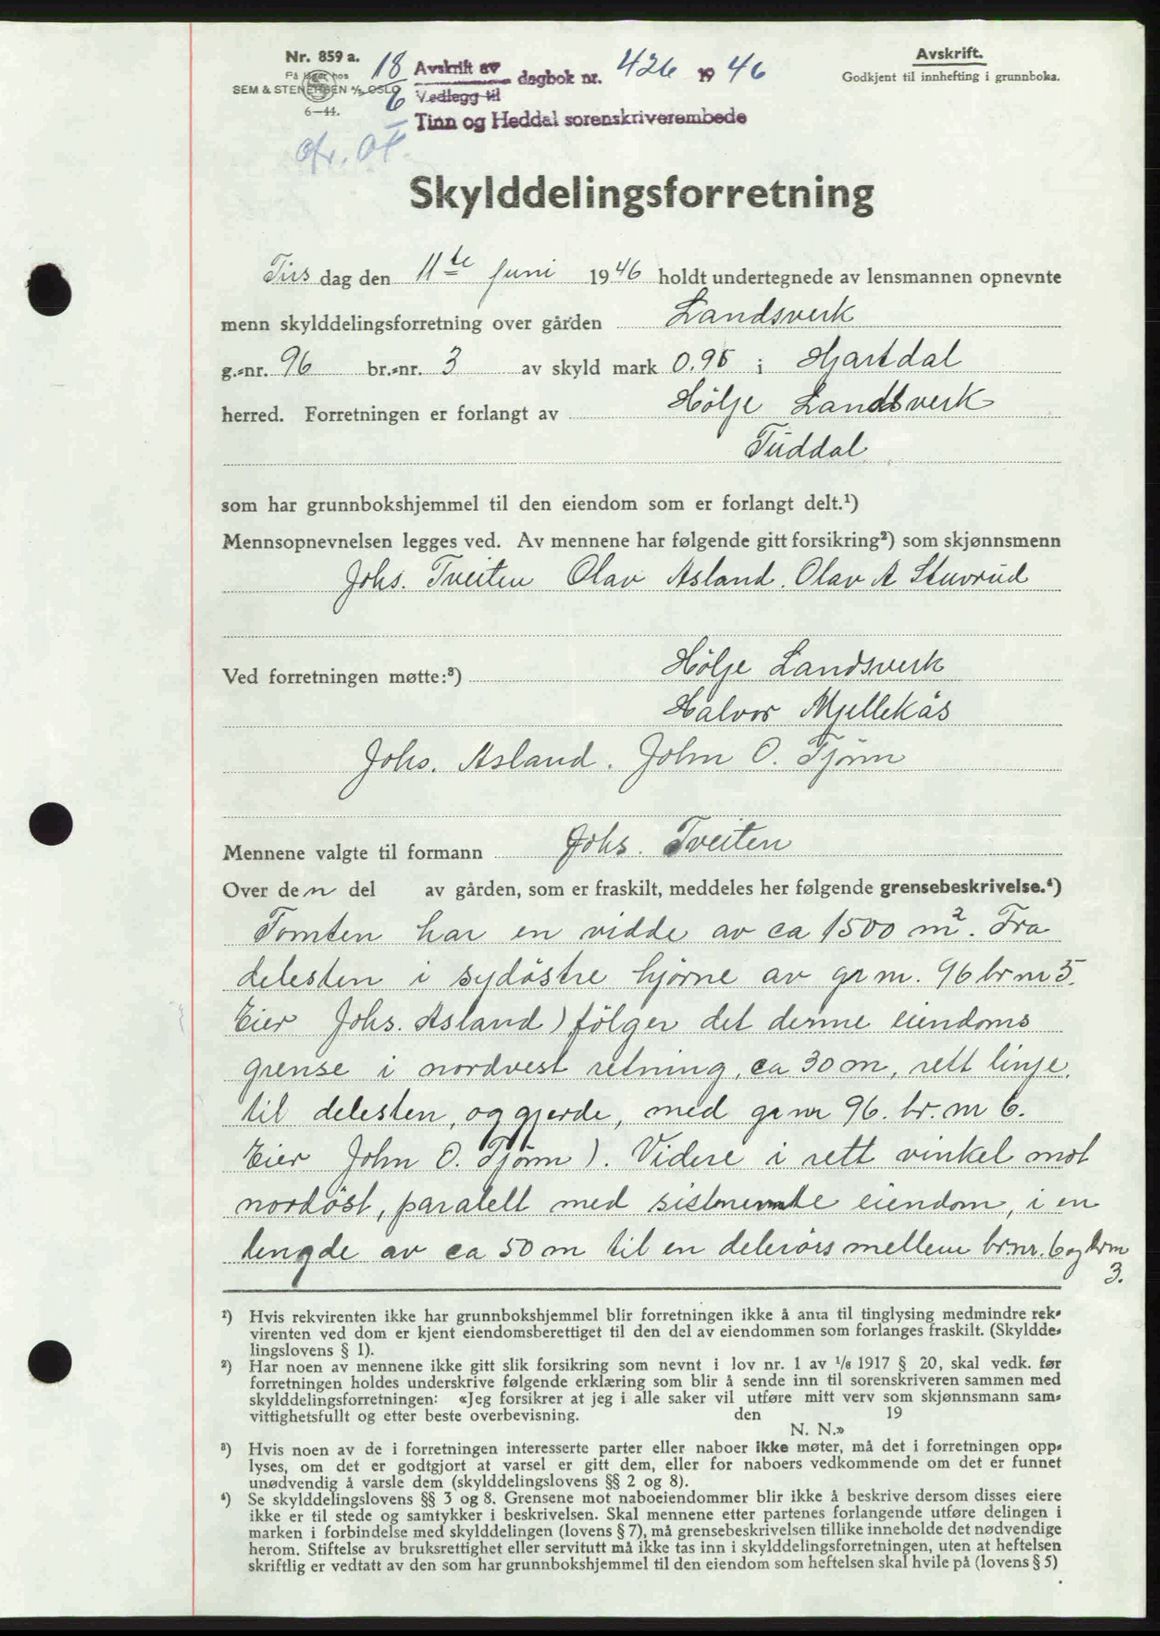 Nr. 859 a.
På lager hos
SEM & STENERSEN A/S OSLO
6—44.
18/6
Avskrift av
Vedlegg til
dagbok nr. 426 1946
Tinn og Heddal sorenskriverembede
Avskrift.
Godkjent til innhefting i grunnboka.
Skylddelingsforretning
Tirs dag den 11te juni 1946 holdt undertegnede av lensmannen opnevnte
menn skylddelingsforretning over gården Landsverk
g.-nr. 96 br.-nr. 3 av skyld mark 0.95 i Hjartdal
herred. Forretningen er forlangt av Hølje Landsverk
Tuddal
som har grunnbokshjemmel til den eiendom som er forlangt delt.¹)
Mennsopnevnelsen legges ved. Av mennene har følgende gitt forsikring²) som skjønnsmenn
Johs. Tveiten Olav Åsland. Olav A Stuvrud
Ved forretningen møtte:³) Hølje Landsverk
Halvor Mjellekås
Johs. Åsland. John O. Tjønn
Mennene valgte til formann Johs. Tveiten
Over den del av gården, som er fraskilt, meddeles her følgende grensebeskrivelse.⁴)
Tomten har en vidde av ca 1500 m². Fra
delesten i sydøstre hjørne av gr nr. 96 br nr 5.
Eier Johs. Åsland) følger det denne eiendoms
grense i nordvest retning, ca 30 m, rett linje,
til delesten, og gjerde, med gr nr 96. br. nr 6.
Eier John O. Tjønn). Videre i rett vinkel mot
nordøst, paralelt med sistnevnte eiendom, i en
lengde av ca 50 m til en delerøis mellem br.nr. 6 og br nr
3.
¹) Hvis rekvirenten ikke har grunnbokshjemmel blir forretningen ikke å anta til tinglysing medmindre rek-
virenten ved dom er kjent eiendomsberettiget til den del av eiendommen som forlanges fraskilt. (Skyldde-
lingslovens § 1).
²) Har noen av mennene ikke gitt slik forsikring som nevnt i lov nr. 1 av 1/6 1917 § 20, skal vedk. før
forretningen holdes underskrive følgende erklæring som blir å sende inn til sorenskriveren sammen med
skylddelingsforretningen: «Jeg forsikrer at jeg i alle saker vil utføre mitt verv som skjønnsmann sam-
vittighetsfullt og etter beste overbevisning. den 19
N. N.»
³) Hvis noen av de i forretningen interesserte parter eller naboer ikke møter, må det i forretningen opp-
lyses, om det er godtgjort at varsel er gitt dem, eller for naboers vedkommende om det er funnet
unødvendig å varsle dem (skylddelingslovens §§ 2 og 8).
⁴) Se skylddelingslovens §§ 3 og 8. Grensene mot naboeiendommer blir ikke å beskrive dersom disses eiere
ikke er til stede og samtykker i beskrivelsen. Skal mennene etter partenes forlangende utføre delingen i
marken i forbindelse med skylddelingen (lovens § 7), må grensebeskrivelsen tillike inneholde det nødvendige
herom. Stiftelse av bruksrettighet eller servitutt må ikke tas inn i skylddelingsforretningen, uten at heftelsen
skriftlig er vedtatt av den som har grunnbokshjemmel til den eiendom som heftelsen skal hvile på (lovens § 5)